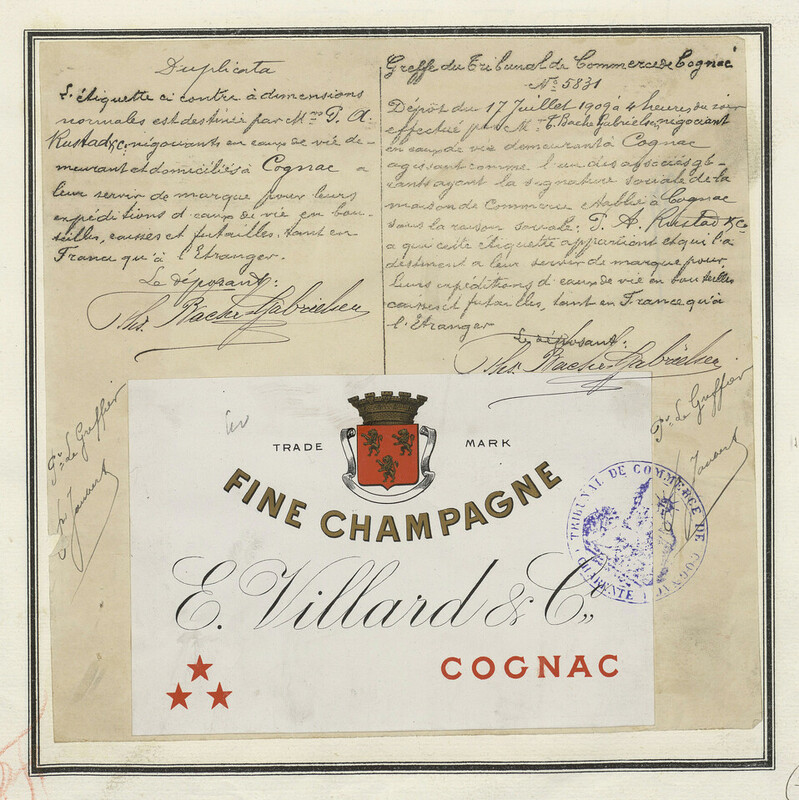 Duplicata
L'étiquette ci contre à dimensions
normales est destinée par Mrs T. A.
Rustad & Co, négociants en eaux de vie de-
meurant et domiciliés à Cognac a
leur servir de marque pour leurs
expéditions d'eaux de vie en bou-
teilles, caisses et futailles, tant en
France qu'à l'Etranger.
Le déposant:
Ths. Bache Gabrielsen
Greffe du Tribunal de Commerce de Cognac
No 5831
Dépôt du 17 Juillet 1909 à 4 heures du soir
effectué par Mr T. Bache Gabrielsen, négociant
en eaux de vie demeurant à Cognac
agissant comme l'un des associés gé-
rants ayant la signature sociale de la
maison de Commerce établie à Cognac
sous la raison sociale: T. A. Rustad & Co
a qui cette étiquette appartient et qui l'a
destinent a leur servir de marque pour
leurs expéditions d'eaux de vie en bouteilles
caisses et futailles, tant en France qu'à
l'Etranger
Le déposant:
Ths. Bache Gabrielsen
Pr. Le Greffier
Pr. Le Greffier
TRADE MARK
FINE CHAMPAGNE
E. Villard & Co,,
COGNAC
TRIBUNAL DE COMMERCE DE COGNAC
CHARENTE